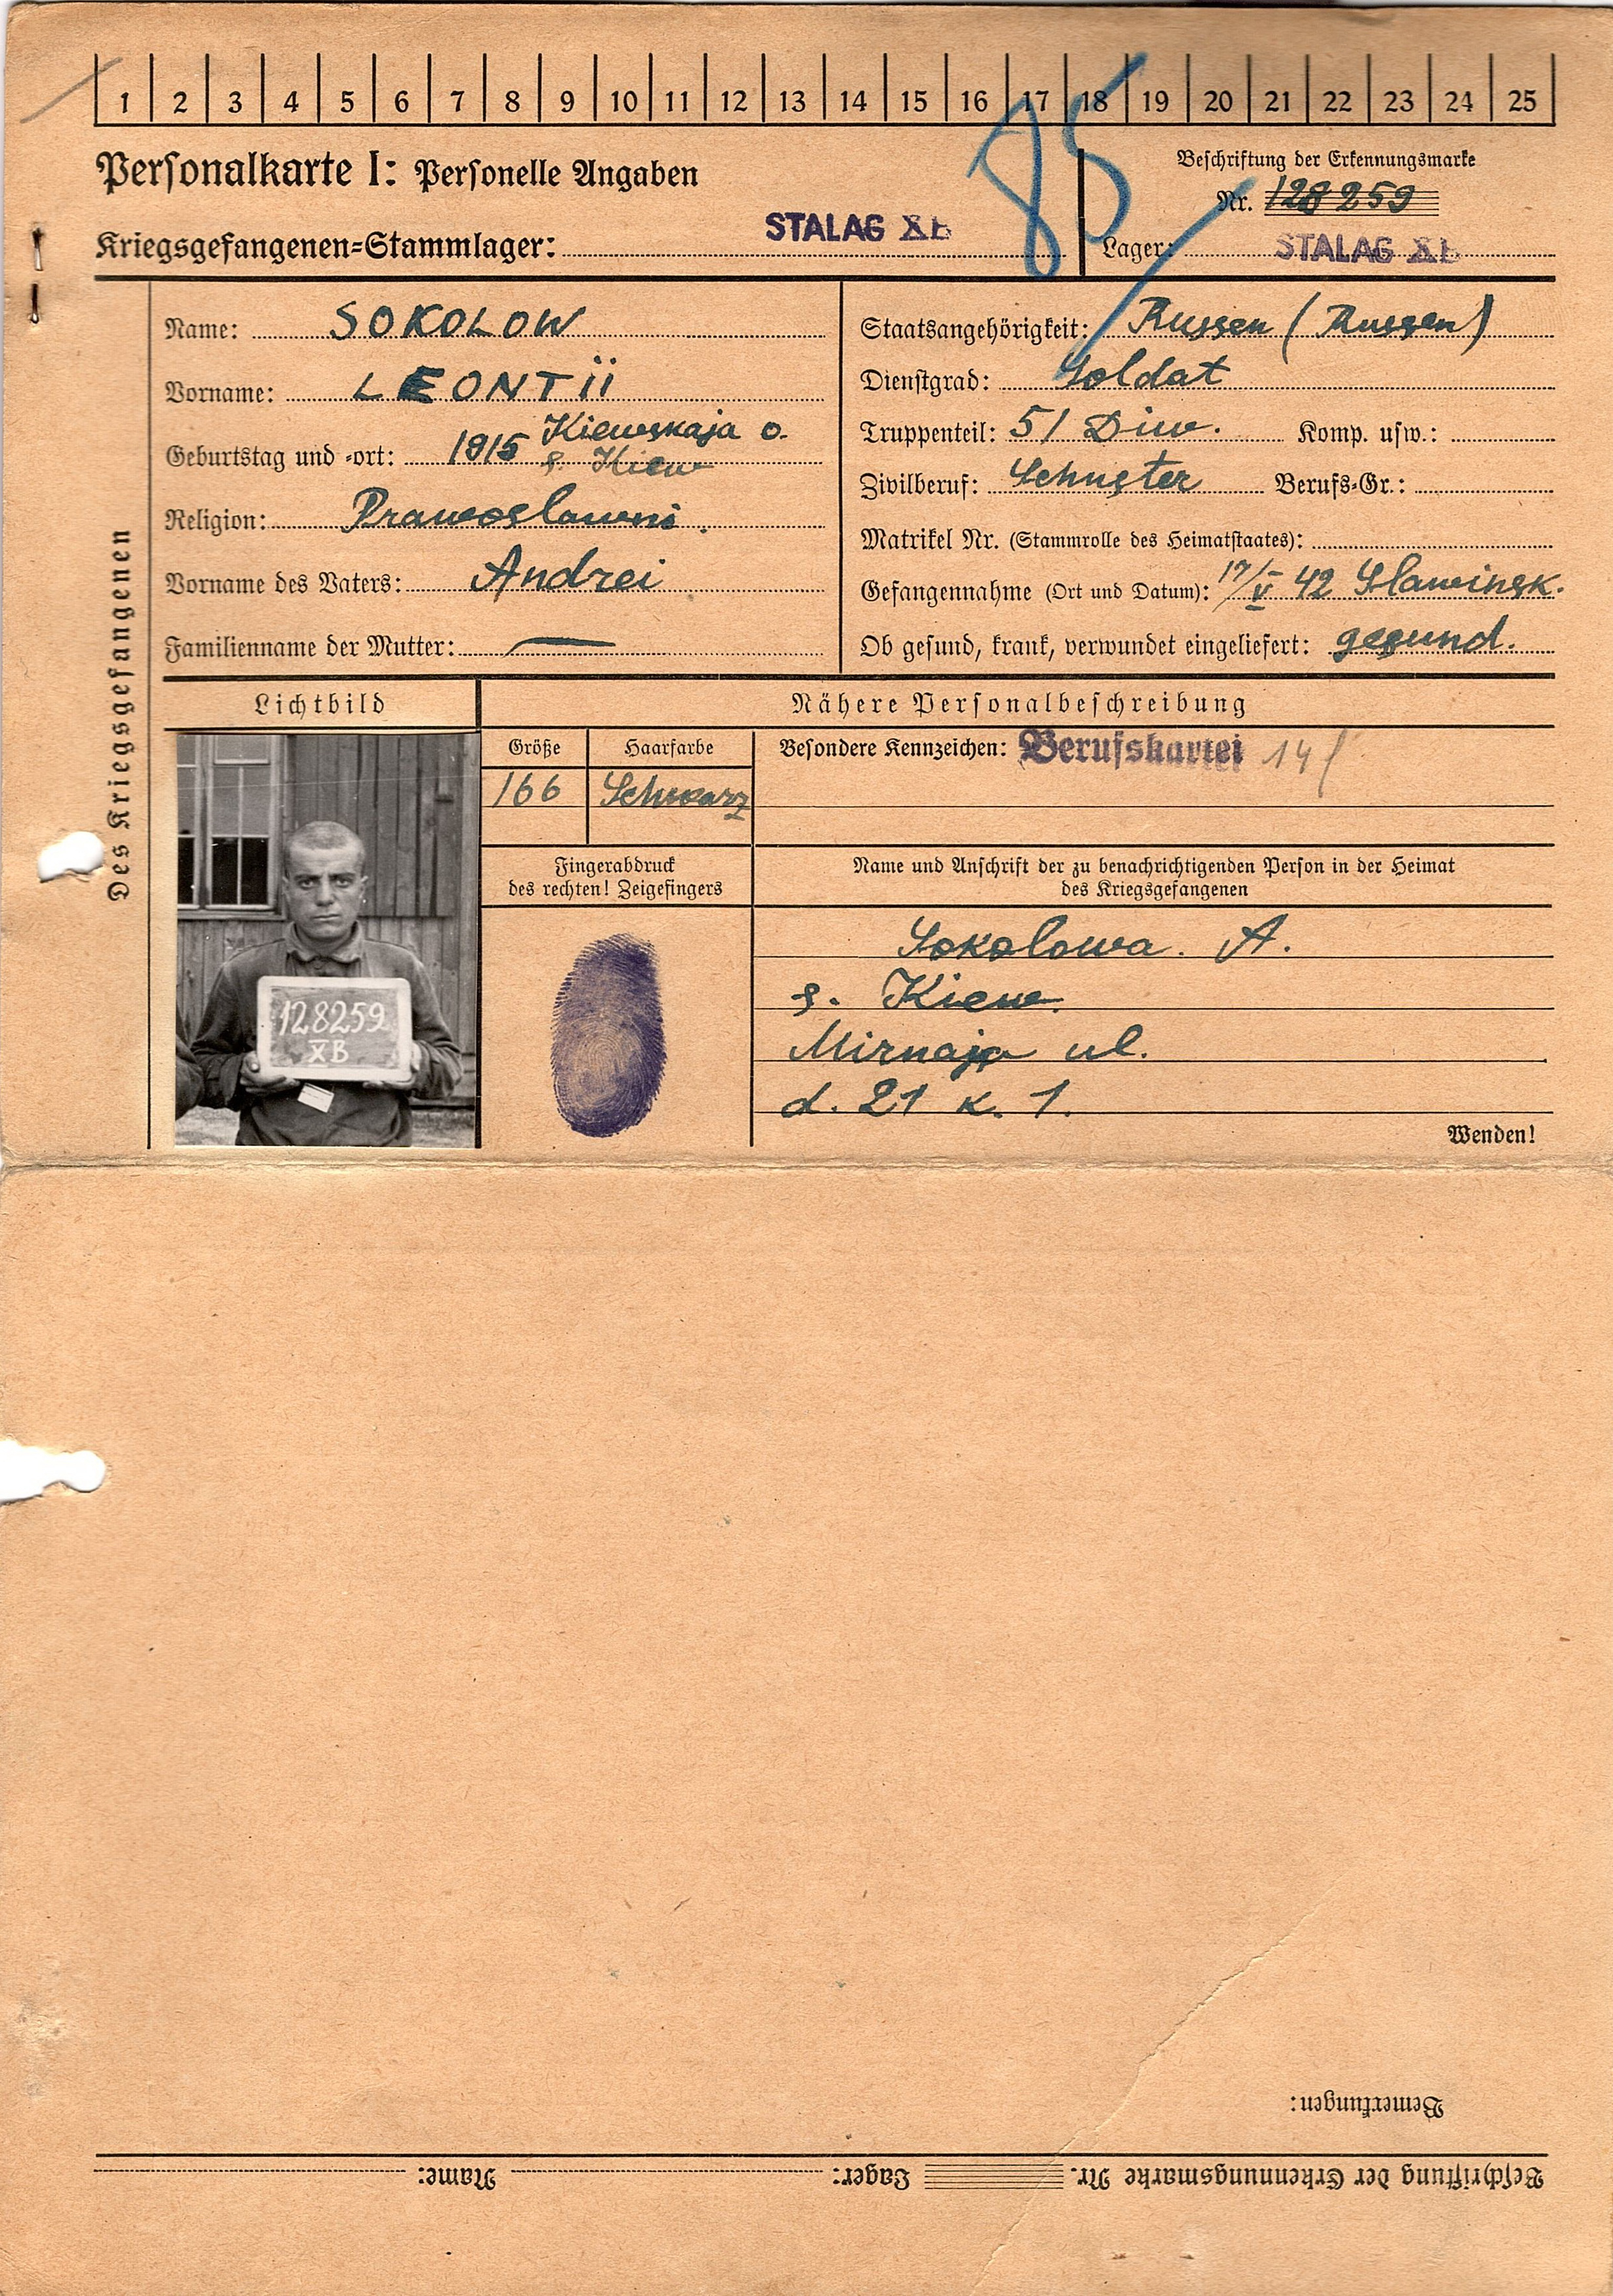 1 2 3 4 5 6 7 8 9 10 11 12 13 14 15 16 17 18 19 20 21 22 23 24 25
85
Personalkarte I: Personelle Angaben
Beschriftung der Erkennungsmarke
Nr. 128259
Kriegsgefangenen-Stammlager: STALAG XB
Lager: STALAG XB
Des Kriegsgefangenen
Name: SOKOLOW
Vorname: LEONTII
Geburtstag und -ort: 1915 Kiewskaja o.
g. Kiew
Religion: Prawoslawni.
Vorname des Vaters: Andrei
Familienname der Mutter: —
Staatsangehörigkeit: Russen (Russen)
Dienstgrad: Soldat
Truppenteil: 51 Diw. Komp. usw.:
Zivilberuf: Schuster Berufs-Gr.:
Matrikel Nr. (Stammrolle des Heimatstaates):
Gefangennahme (Ort und Datum): 17/V 42 Slawinsk.
Ob gesund, krank, verwundet eingeliefert: gesund.
Lichtbild
128259
XB
Nähere Personalbeschreibung
Größe
166
Haarfarbe
Schwarz
Besondere Kennzeichen: Berufskartei 14
Fingerabdruck
des rechten! Zeigefingers
Name und Anschrift der zu benachrichtigenden Person in der Heimat
des Kriegsgefangenen
Sokolowa. A.
g. Kiew.
Mirnaja ul.
d. 21 k. 1.
Wenden!
Bemerkungen:
Beschriftung der Erkennungsmarke Nr. Lager: Name: